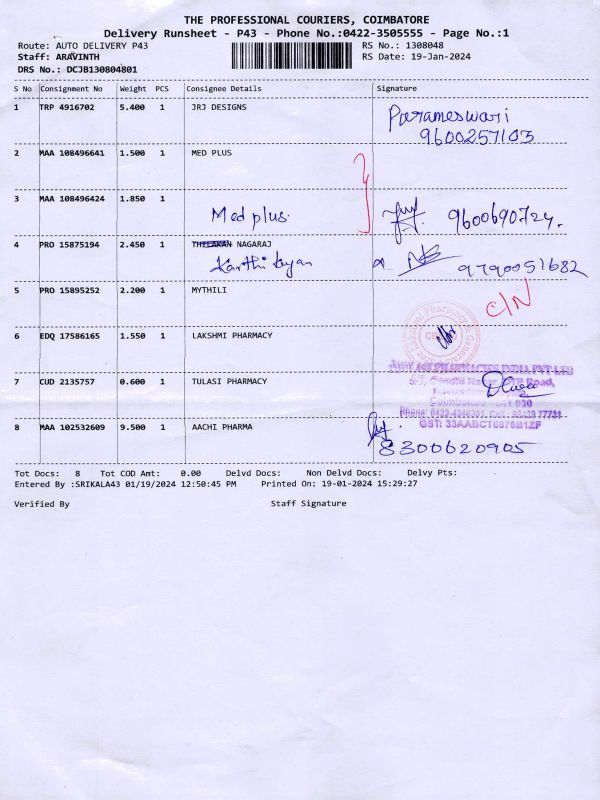 THE PROFESSIONAL COURIERS, COIMBATORE
Delivery Runsheet - P43 - Phone No.:0422-3505555 - Page No.:1
Route: AUTO DELIVERY P43 RS No.: 1308048
Staff: ARAVINTH RS Date: 19-Jan-2024
DRS No.: DCJB130804801
S No Consignment No Weight PCS Consignee Details Signature
1 TRP 4916702 5.400 1 JRJ DESIGNS
Parameswari
9600257103
2 MAA 108496641 1.500 1 MED PLUS
3 MAA 108496424 1.850 1
Med plus. 9600690724.
4 PRO 15875194 2.450 1 THILAKAN NAGARAJ
Karthikeyan 9790051682
5 PRO 15895252 2.200 1 MYTHILI
C/N
6 EDQ 17586165 1.550 1 LAKSHMI PHARMACY
7 CUD 2135757 0.600 1 TULASI PHARMACY
PHARMACIES INDIA PVT LTD
Gandhi Nagar Road,
Coimbatore - 641 030
GST: 33AABCT6876B1ZF
8 MAA 102532609 9.500 1 AACHI PHARMA
8300620905
Tot Docs: 8 Tot COD Amt: 0.00 Delvd Docs: Non Delvd Docs: Delvy Pts:
Entered By :SRIKALA43 01/19/2024 12:50:45 PM Printed On: 19-01-2024 15:29:27
Verified By Staff Signature